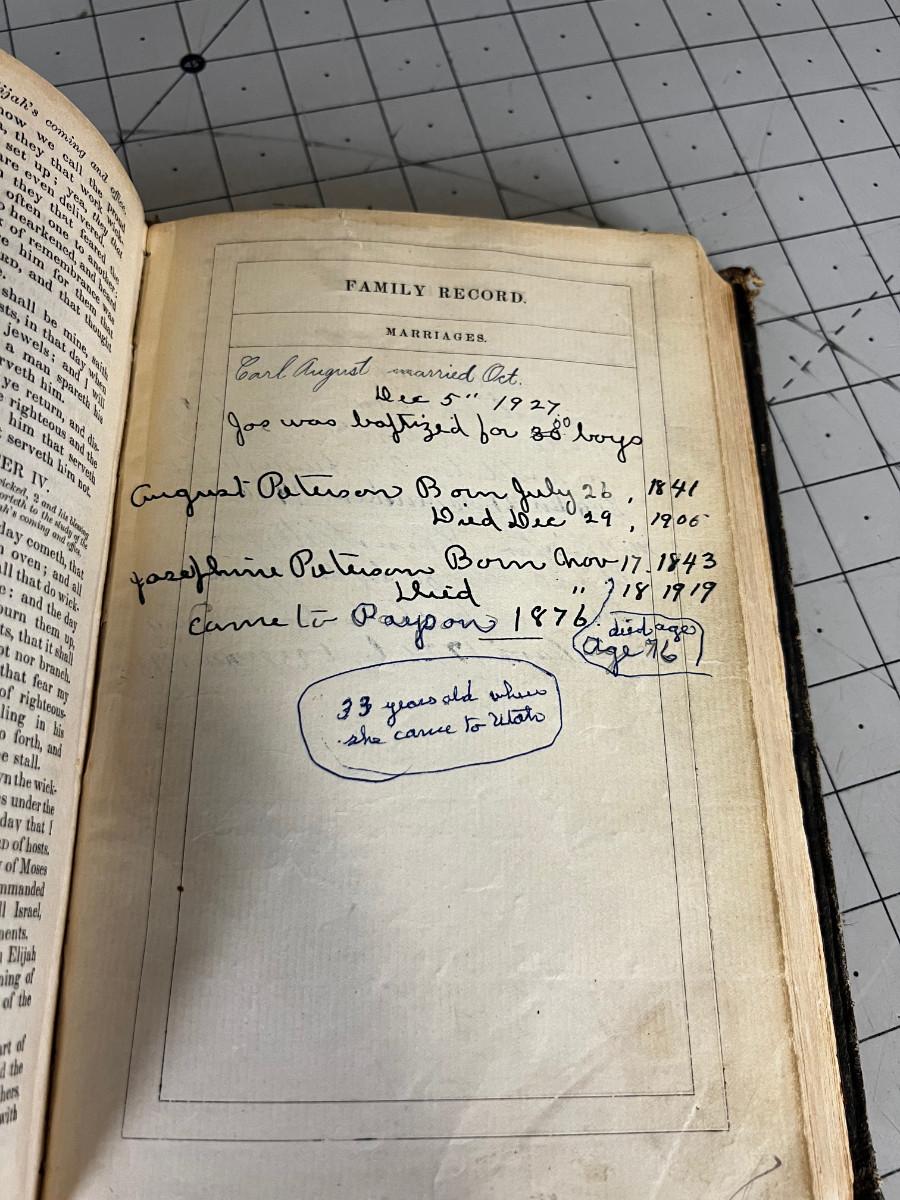 ijah's coming and office.
now we call the proud
, they that work wick-
set up; yea, they that
are even delivered.
they that feared the
often one to another:
hearkened, and heard
of remembrance was
e him for them that
ORD, and that thought
shall be mine, saith
sts, in that day when
jewels; and I will
a man spareth his
rveth him.
ye return, and dis-
e righteous and the
him that serveth
t serveth him not.
ER IV.
wicked, 2 and his blessing
orteth to the study of the
ah's coming and office.
day cometh, that
n oven; and all
all that do wick-
e: and the day
burn them up,
ts, that it shall
ot nor branch.
that fear my
of righteous-
ling in his
o forth, and
e stall.
n the wick-
s under the
day that I
D of hosts.
of Moses
mmanded
ll Israel,
ments.
Elijah
ning of
of the
art of
d the
hers
with
FAMILY RECORD.
MARRIAGES.
Carl August married Oct.
Dec 5" 1927
Joe was baptized for 80 boys
August Peterson Born July 26, 1841
Died Dec 29, 1906
Josephine Peterson Born Nov 17. 1843
Died " 18 1919
Came to Payson 1876
died age
Age 76
33 years old when
she came to Utah